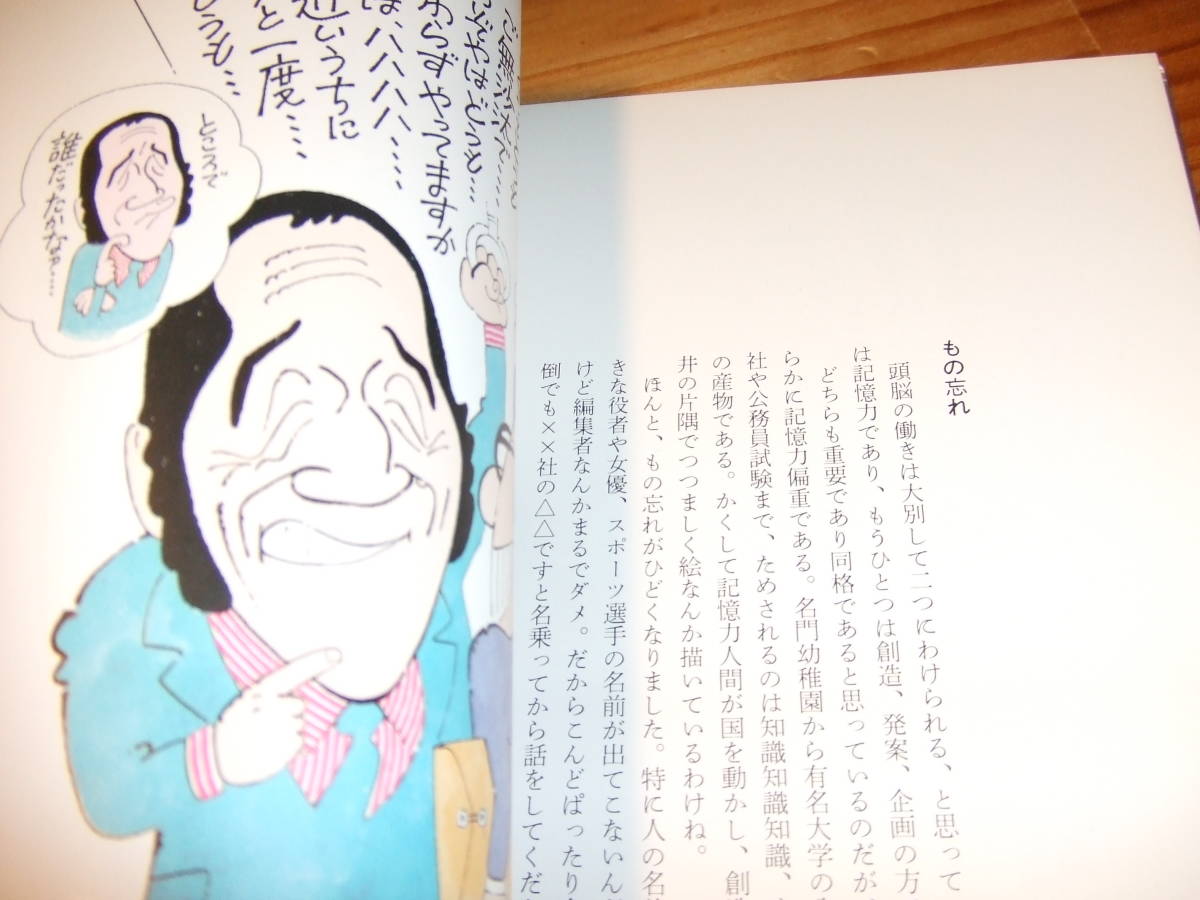 ご無沙汰で……
わらずやってますか
は、ハハハハ……
近いうちに
と一度……
うも……
ところで
誰だったかなァ……
もの忘れ
頭脳の働きは大別して二つにわけられる、と思って
は記憶力であり、もうひとつは創造、発案、企画の方
どちらも重要であり同格であると思っているのだが
らかに記憶力偏重である。名門幼稚園から有名大学の
社や公務員試験まで、ためされるのは知識知識知識、
の産物である。かくして記憶力人間が国を動かし、創
井の片隅でつつましく絵なんか描いているわけね。
ほんと、もの忘れがひどくなりました。特に人の名
きな役者や女優、スポーツ選手の名前が出てこないん
けど編集者なんかまるでダメ。だからこんどぱったり
倒でも××社の△△ですと名乗ってから話をしてくだ